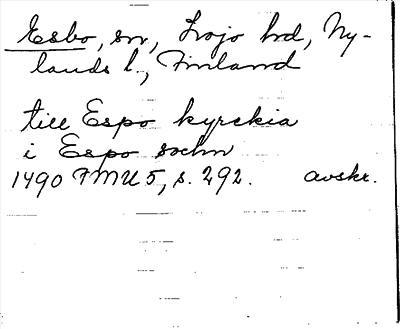 Esbo, sn, Lojo hd, Ny-
lands l., Finland
till Espo kyrckia
i Espo sochn
1490 FMU 5, s. 292. avskr.